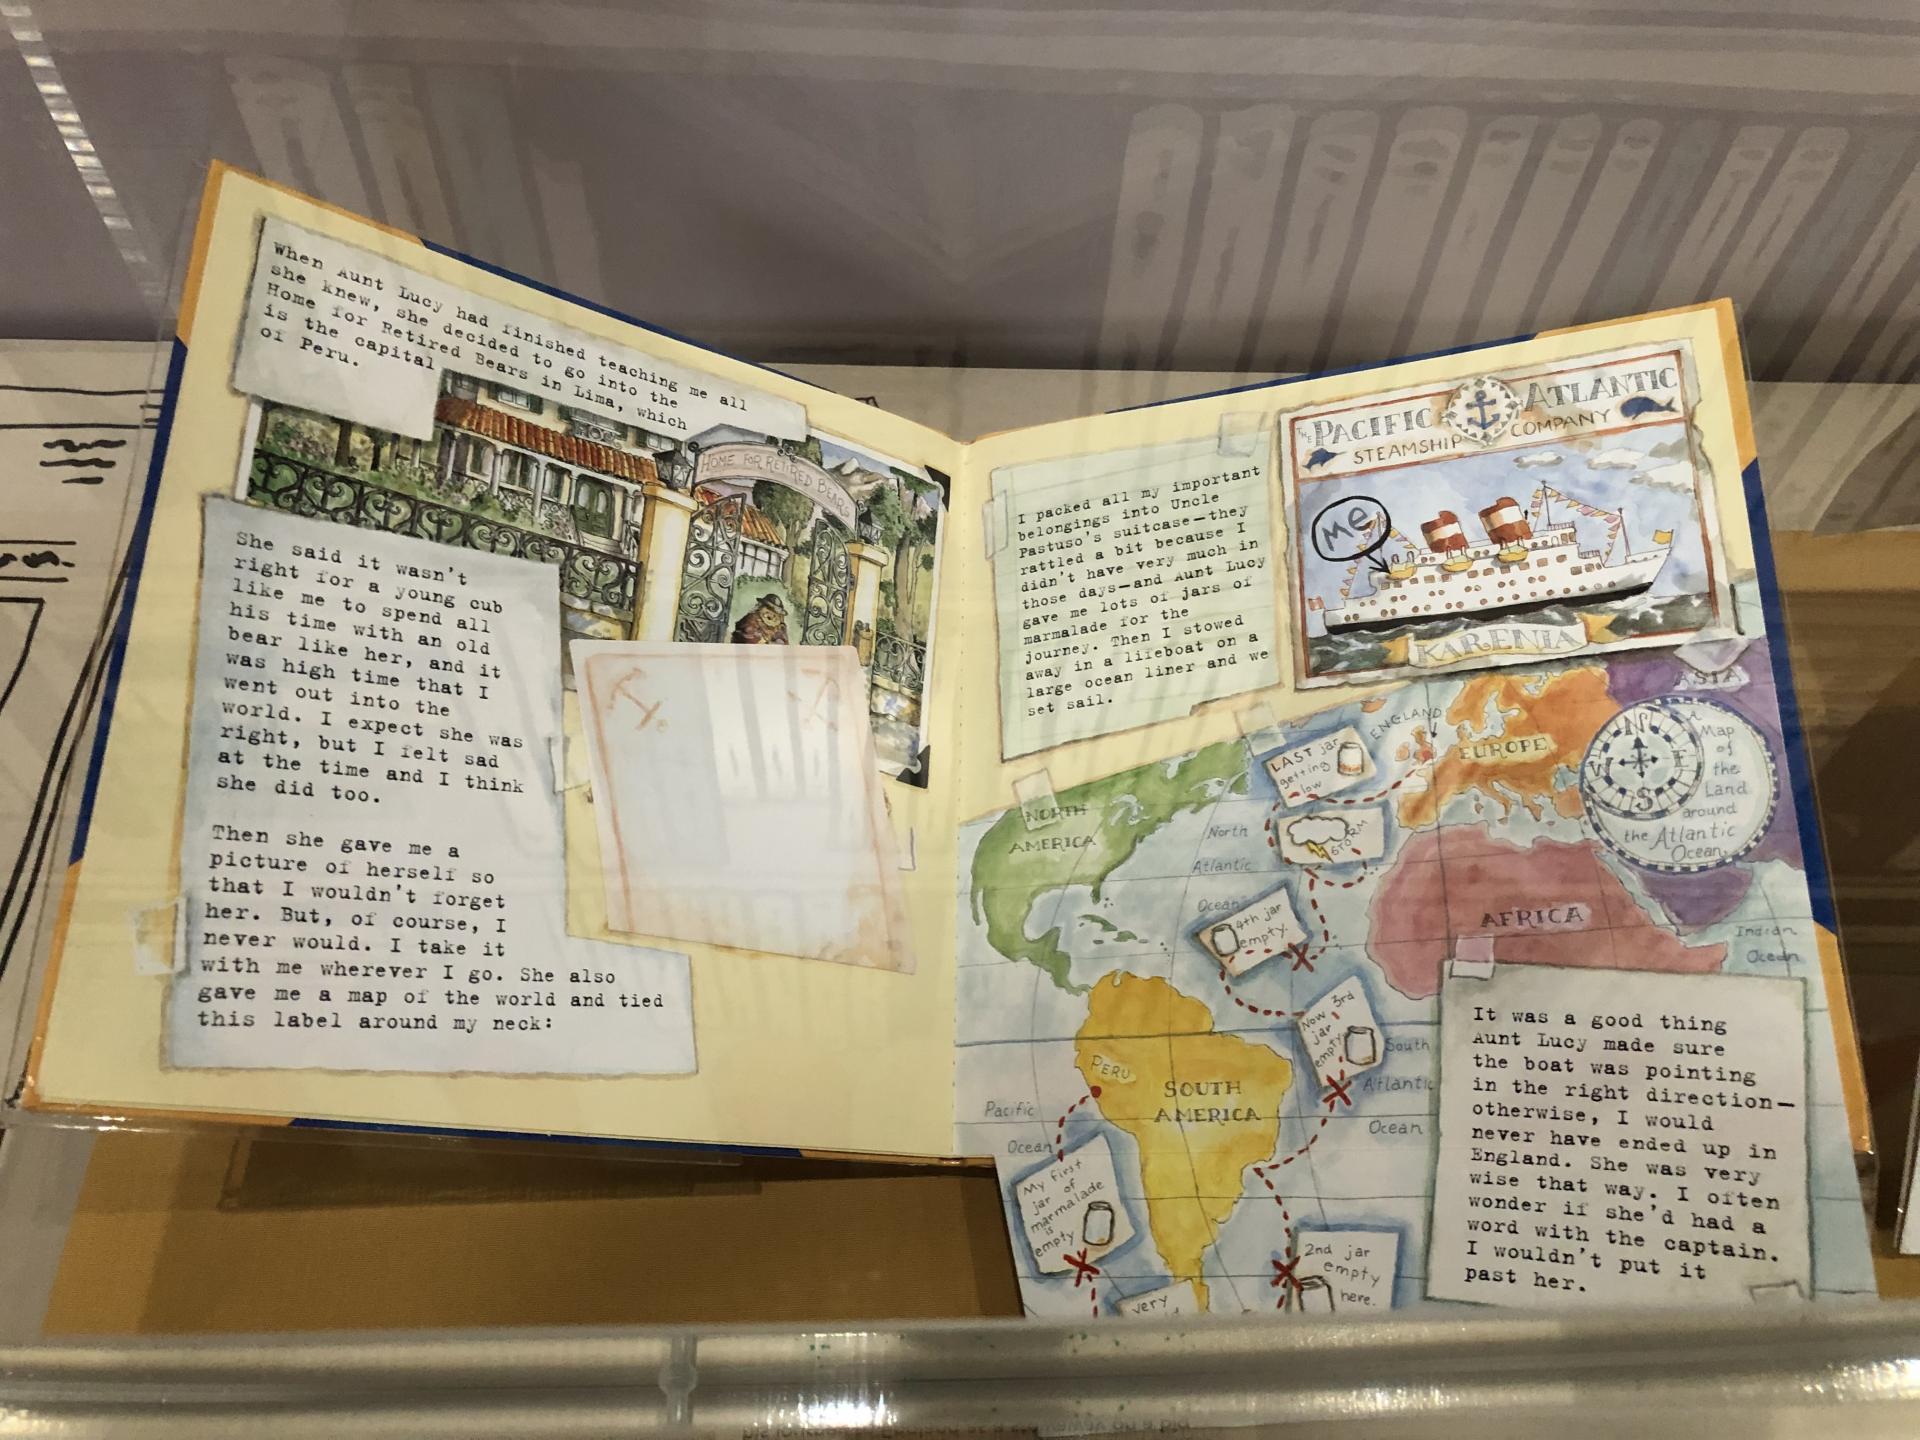 When Aunt Lucy had finished teaching me all
she knew, she decided to go into the
Home for Retired Bears in Lima, which
is the capital
of Peru.
HOME FOR RETIRED BEARS
She said it wasn't
right for a young cub
like me to spend all
his time with an old
bear like her, and it
was high time that I
went out into the
world. I expect she was
right, but I felt sad
at the time and I think
she did too.
Then she gave me a
picture of herself so
that I wouldn't forget
her. But, of course, I
never would. I take it
with me wherever I go. She also
gave me a map of the world and tied
this label around my neck:
I packed all my important
belongings into Uncle
Pastuso's suitcase—they
rattled a bit because I
didn't have very much in
those days—and Aunt Lucy
gave me lots of jars of
marmalade for the
journey. Then I stowed
away in a lifeboat on a
large ocean liner and we
set sail.
THE PACIFIC ATLANTIC
STEAMSHIP COMPANY
me
KARENIA
ASIA
ENGLAND
EUROPE
N
E
S
W
A
Map
of
the
Land
around
the Atlantic
Ocean
LAST jar
getting
low
STORM
NORTH
AMERICA
North
Atlantic
Ocean
4th jar
empty.
AFRICA
Indian
Ocean
Now 3rd
jar
empty
South
Atlantic
Ocean
PERU
SOUTH
AMERICA
Pacific
Ocean
My first
jar of
marmalade
is
empty
2nd jar
empty
here.
very
It was a good thing
Aunt Lucy made sure
the boat was pointing
in the right direction—
otherwise, I would
never have ended up in
England. She was very
wise that way. I often
wonder if she'd had a
word with the captain.
I wouldn't put it
past her.